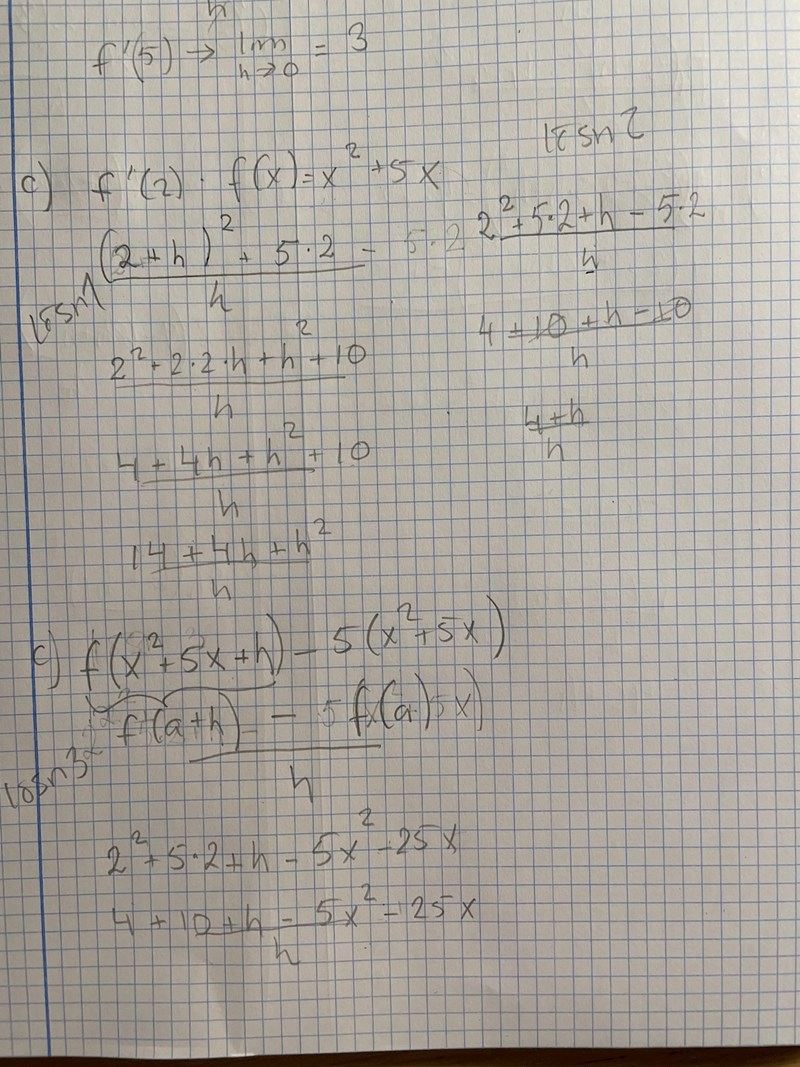 h
f'(5) → lim h→0 = 3
c) f'(2) · f(x) = x² + 5x
lösn1
(2+h)² + 5·2 - 5·2
h
2² + 2·2·h + h² + 10
h
4 + 4h + h² + 10
h
14 + 4h + h²
h
lösn2
2² + 5·2 + h - 5·2
h
4 + 10 + h - 10
h
4+h
h
c) f(x² + 5x + h) - 5(x² + 5x)
lösn3
f(a+h) - f(a) 5x)
h
2² + 5·2 + h - 5x² - 25x
4 + 10 + h - 5x² - 25x
h